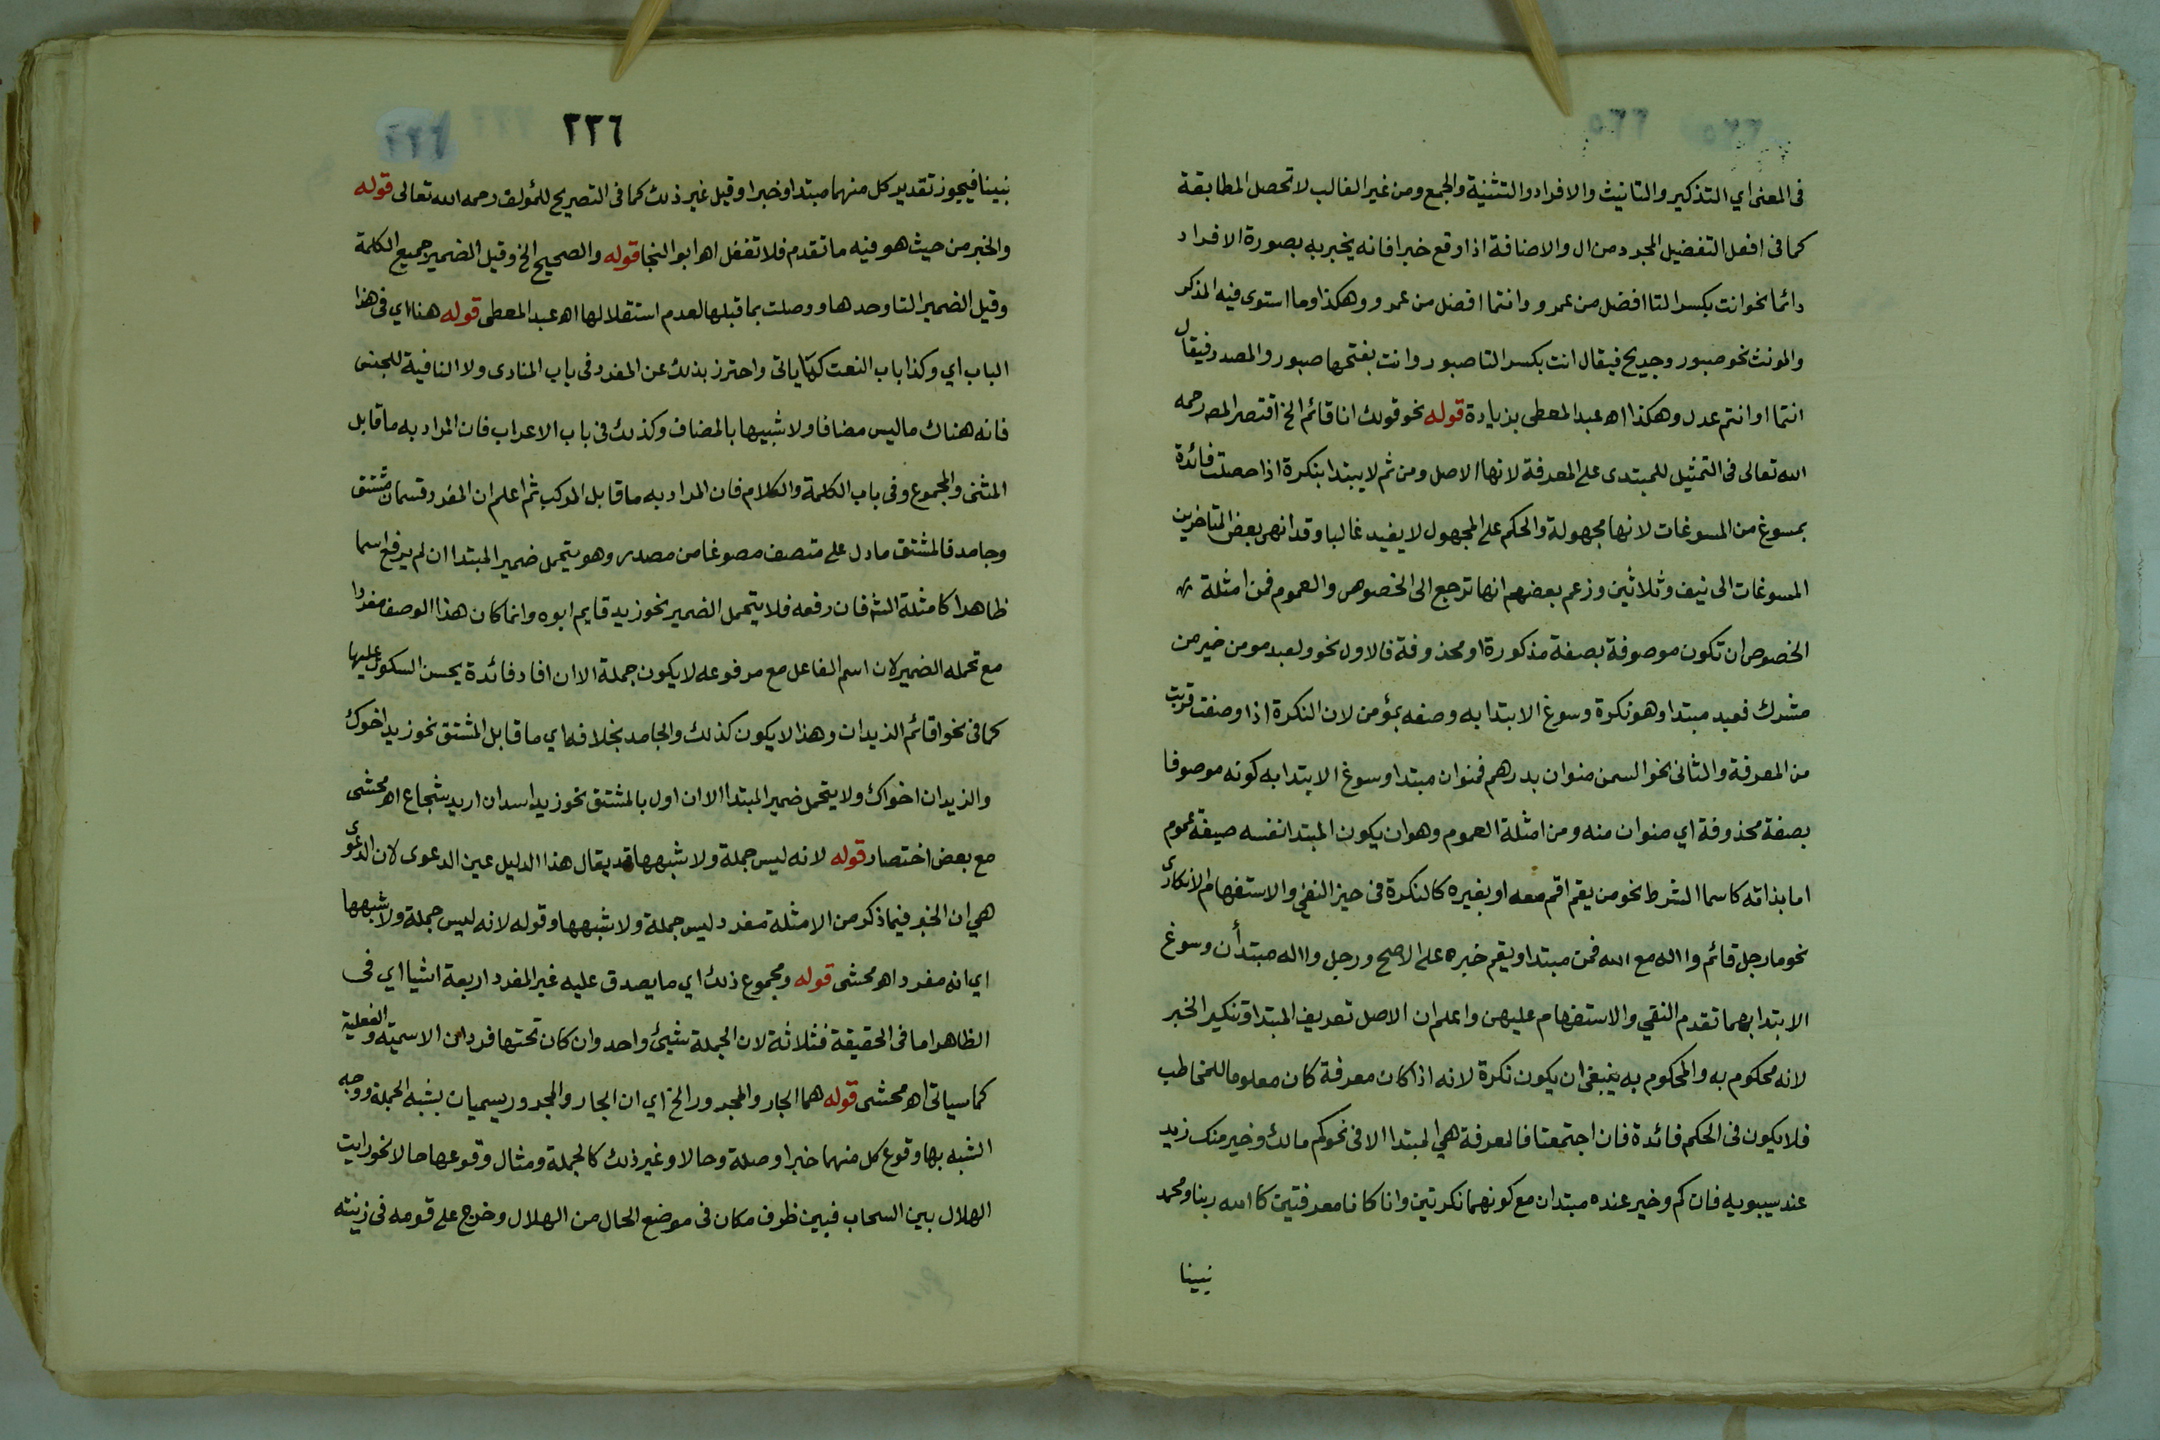 في المعنى اي التذكير والتانيث والافراد والتثنية والجمع ومن غير الغالب لا تحصل المطابقة
كما في افعل التفضيل المجرد من ال والاضافة اذا وقع خبرا فانه يخبر به بصورة الافراد
دائما نحو انت بكسر التا افضل من عمرو وانتما افضل من عمرو وهكذا وما استوى فيه المذكر
والمونث نحو صبور وجريح فيقال انت بكسر التا صبور وانت بفتحها صبور والمصدر فيقال
انتما او انتم عدل وهكذا اهـ عبد المعطى بزيادة قوله نحو قولك انا قائم الخ اقتصر المص رحمه
الله تعالى في التمثيل للمبتدى على المعرفة لانها الاصل ومن ثم لا يبتدا بنكرة اذا حصلت فائدة
بمسوغ من المسوغات لانها مجهولة والحكم على المجهول لا يفيد غالبا وقد انهى بعض المتاخرين
المسوغات الى نيف وثلاثين وزعم بعضهم انها ترجع الى الخصوص والعموم فمن امثلة
الخصوص ان تكون موصوفة بصفة مذكورة او محذوفة فالاول نحو ولعبد مومن خير من
مشرك فعبد مبتدا وهو نكرة وسوغ الابتدا به وصفه بمؤمن لان النكرة اذا وصفت قربت
من المعرفة والثانى نحو السمن منوان بدرهم فمنوان مبتدا وسوغ الابتدا به كونه موصوفا
بصفة محذوفة اي منوان منه ومن امثلة العموم وهو ان يكون المبتدا نفسه صيغة عموم
اما بذاته كاسما الشرط نحو من يقم اقم معه او بغيره كالنكرة في حيز النفي والاستفهام الانكارى
نحو ما رجل قائم وااله مع الله فمن مبتدا ويقم خبره على الاصح ورجل وااله مبتدأن وسوغ
الابتدا بهما تقدم النفي والاستفهام عليهن واعلم ان الاصل تعريف المبتدا وتنكير الخبر
لانه محكوم به والمحكوم به ينبغى ان يكون نكرة لانه اذا كان معرفة كان معلوما للمخاطب
فلا يكون في الحكم فائدة فان اجتمعتا فالمعرفة هي المبتدا الا في نحو كم مالك وخير منك زيد
عند سيبويه فان كم وخير عنده مبتدان مع كونهما نكرتين وانا كانا معرفتين كالله ربنا ومحمد
نبينا
٣٣٦
نبينا فيجوز تقدير كل منهما مبتدا وخبرا وقيل غير ذلك كما في التصريح للمؤلف رحمه الله تعالى قوله
والخبر من حيث هو فيه ما تقدم فلا تغفل اهـ ابو النجا قوله والصحيح الخ وقيل الضمير جميع الكلمة
وقيل الضمير التا وحدها ووصلت بما قبلها لعدم استقلالها اهـ عبد المعطى قوله هنا اي في هذا
الباب اي وكذا باب النعت كما ياتى واحترز بذلك عن المفرد في باب المنادى ولا النافية للجنس
فانه هناك ما ليس مضافا ولا شبيها بالمضاف وكذلك في باب الاعراب فان المراد به ما قابل
المثنى والمجموع وفى باب الكلمة والكلام فان المراد به ما قابل المركب ثم اعلم ان المفرد قسمان مشتق
وجامد فالمشتق ما دل على متصف مصوغا من مصدر وهو يتحمل ضمير المبتدا ان لم يرفع اسما
ظاهرا كامثلة الش فان رفعه فلا يتحمل الضمير نحو زيد قايم ابوه وانما كان هذا الوصف مفردا
مع تحمله الضمير لان اسم الفاعل مع مرفوعه لا يكون جملة الا ان افاد فائدة يحسن السكوت عليها
كما في نحو اقائم الزيدان وهذا لا يكون كذلك والجامد بخلافه اي ما قابل المشتق نحو زيد اخوك
والزيدان اخواك ولا يتحمل ضمير المبتدا الا ان اول بالمشتق نحو زيد اسد ان اريد شجاع اهـ محشى
مع بعض اختصار قوله لانه ليس جملة ولا شبهها قد يقال هذا الدليل عين الدعوى لان الدعوى
هي ان الخبر فيما ذكر من الامثلة مفرد ليس جملة ولا شبهها وقوله لانه ليس جملة ولا شبهها
اي انه مفرد اهـ محشى قوله ومجموع ذلك اي ما يصدق عليه غير المفرد اربعة اشيا اي في
الظاهر اما في الحقيقة فثلاثة لان الجملة شيئ واحد وان كان تحتها فردان الاسمية والفعلية
كما سياتى اهـ محشى قوله هما الجار والمجرور الخ اي ان الجار والمجرور يسميان بشبه الجملة ووجه
الشبه بها وقوع كل منهما خبرا وصلة وحالا وغير ذلك كالجملة ومثال وقوعها حالا نحو رايت
الهلال بين السحاب فبين ظرف مكان في موضع الحال من الهلال وخرج على قومه في زينته